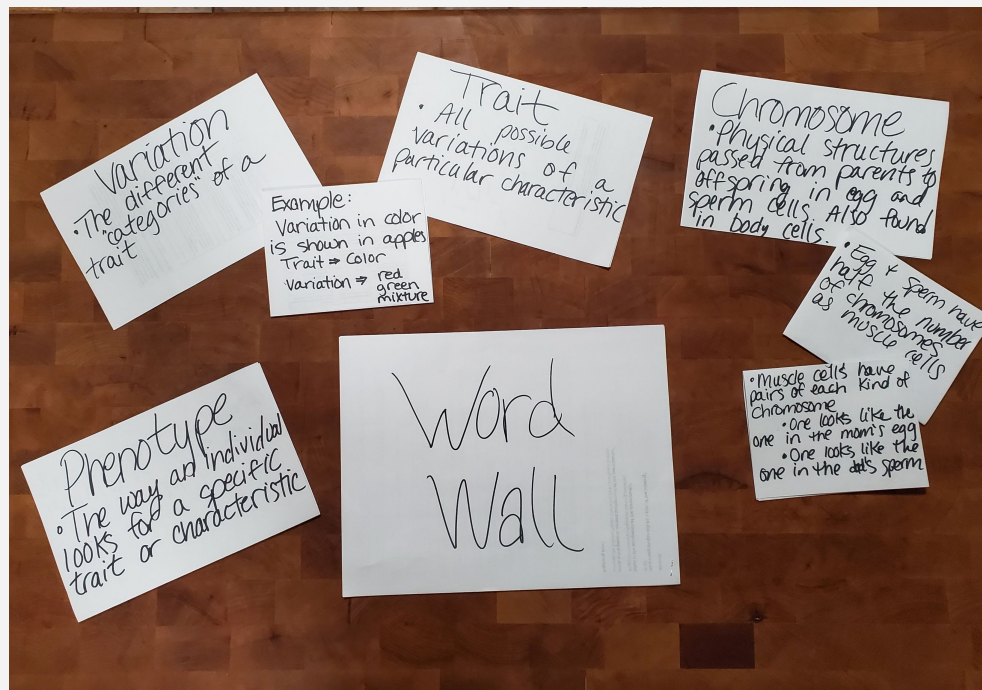 Variation
• The different
"categories" of a
trait
Example:
Variation in color
is shown in apples
Trait ⇒ Color
Variation ⇒ red
green
mixture
Trait
• All possible
variations of a
particular characteristic
Chromosome
• Physical structures
passed from parents to
offspring in egg and
sperm cells. Also found
in body cells.
• Egg + sperm have
half the number
of chromosomes
as muscle cells
• Muscle cells have
pairs of each kind of
chromosome
• One looks like the
one in the mom's egg
• One looks like the
one in the dad's sperm
Phenotype
• The way an individual
looks for a specific
trait or characteristic
Word
Wall